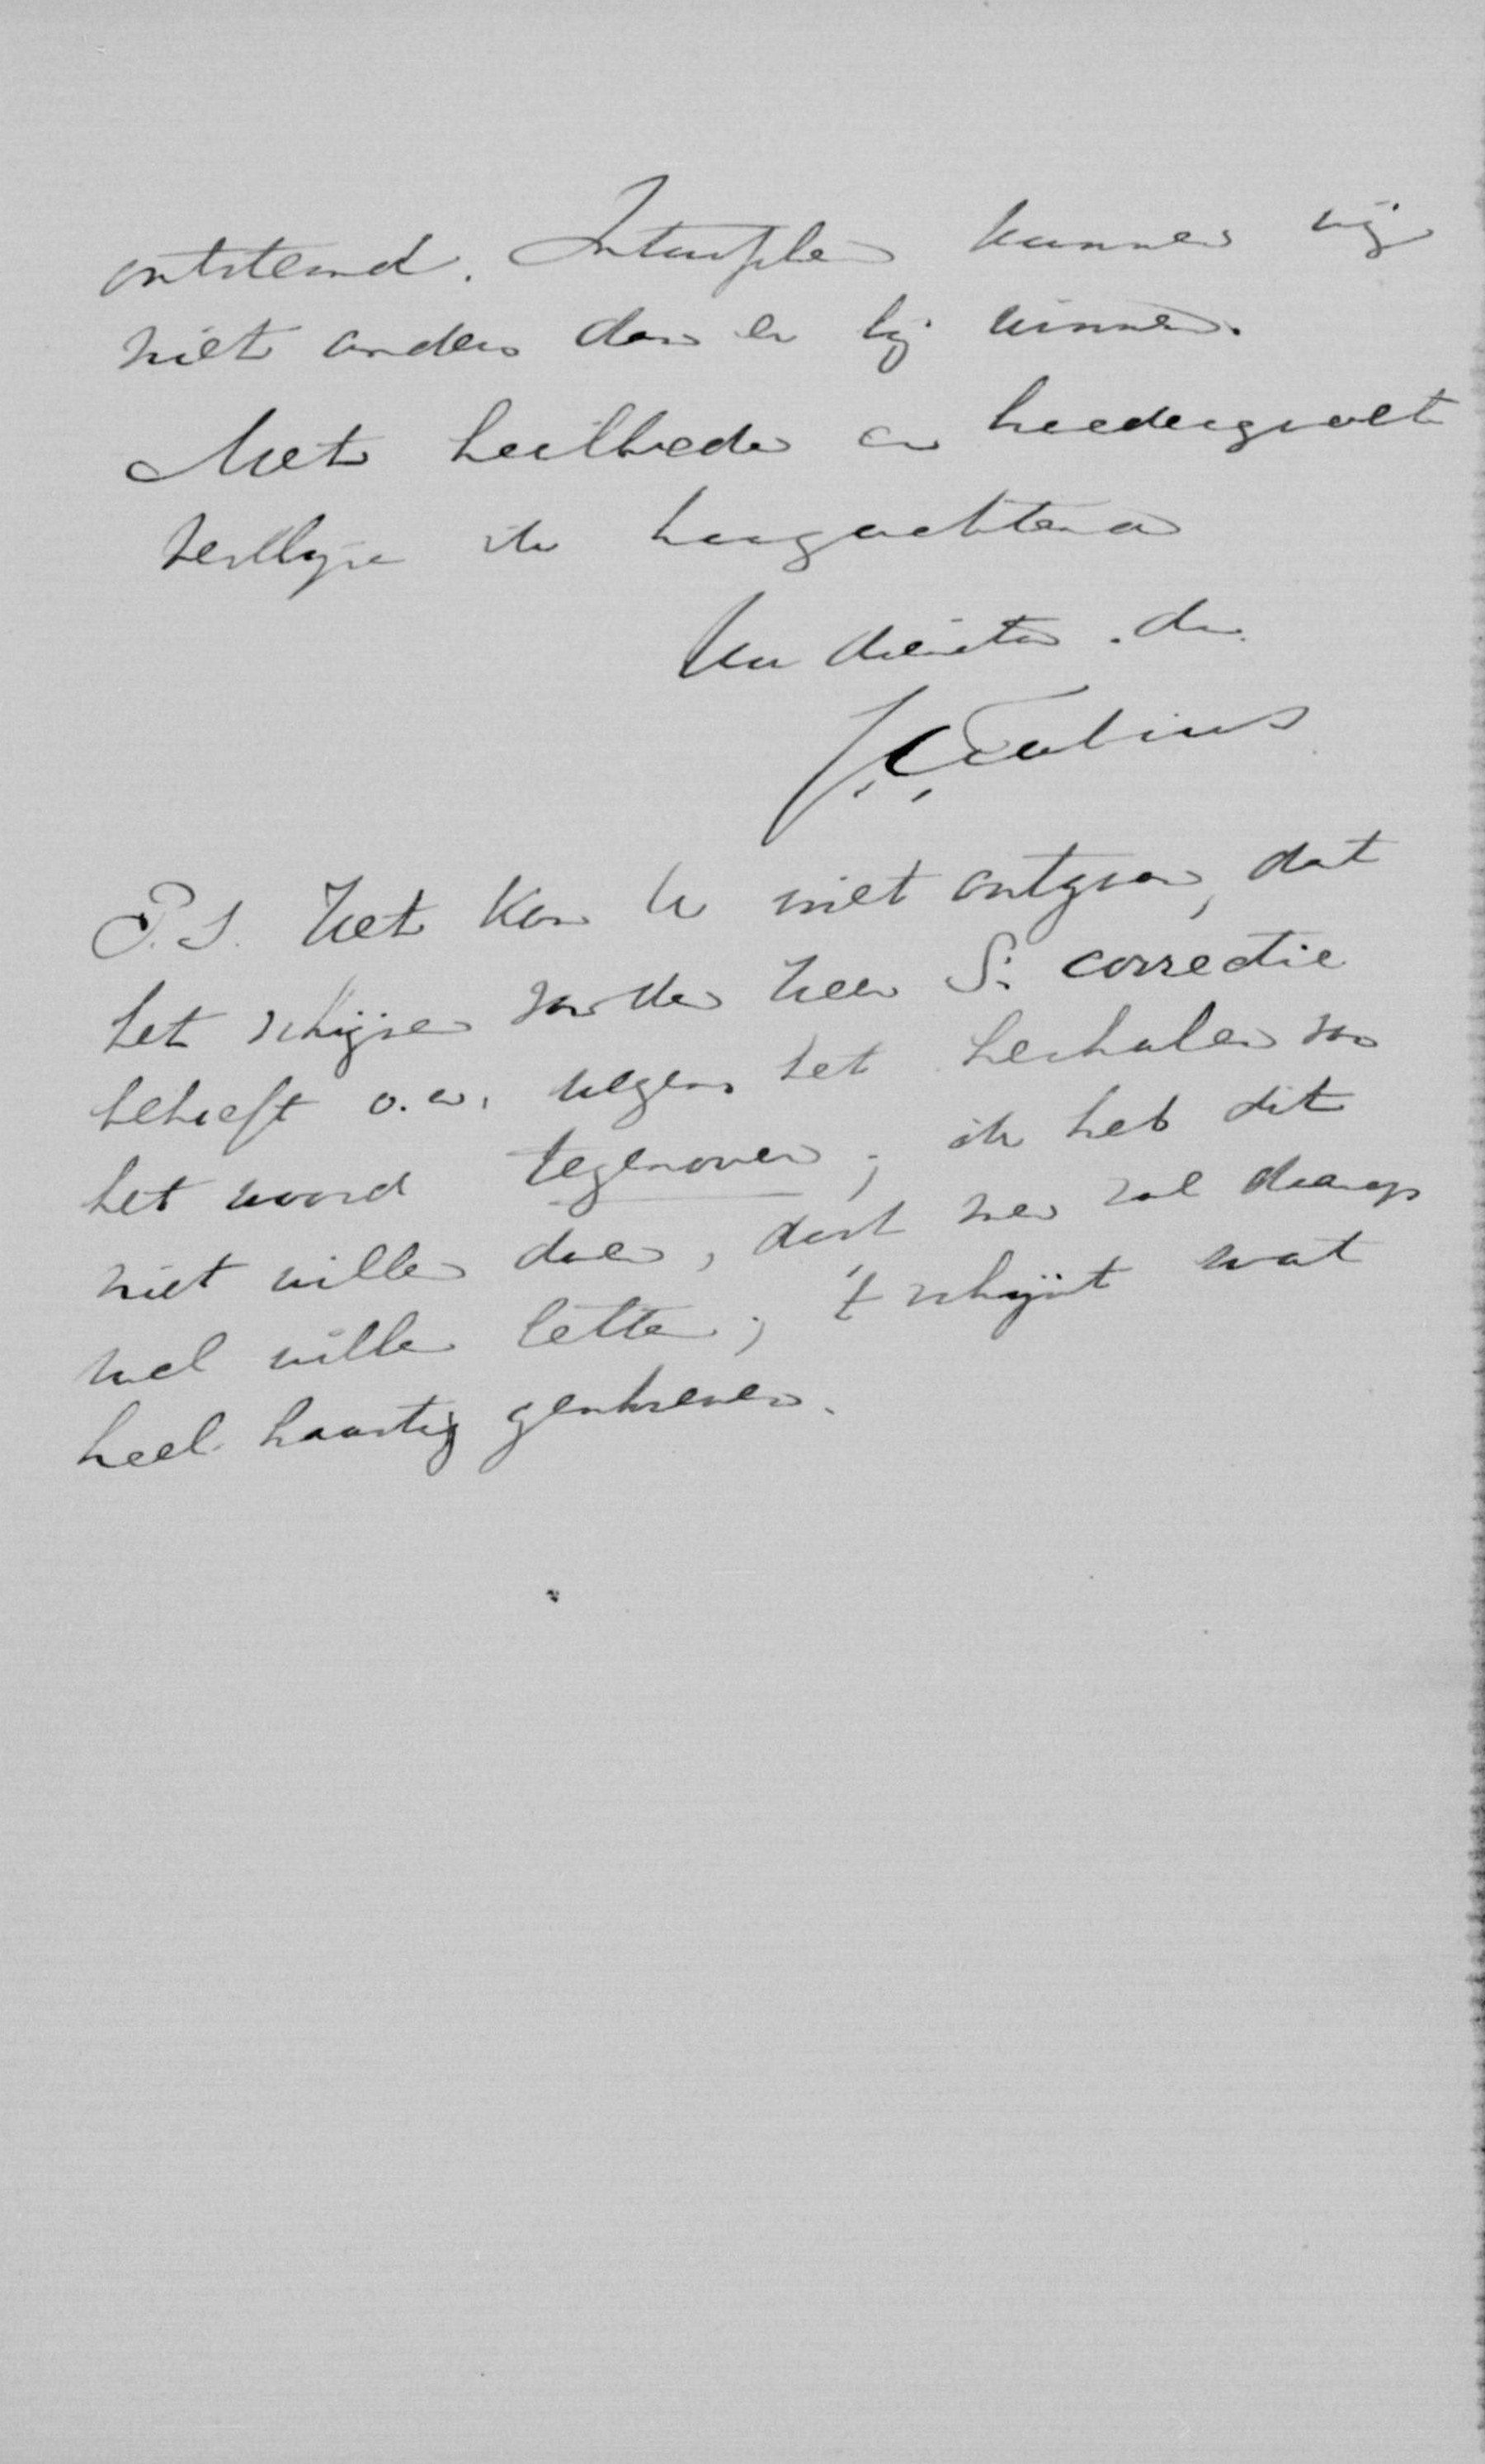 ontstemd. Intusschen kunnen wij
niet anders dan er bij winnen.
Met heilbede en broedergroet
verblijve ik hoogachtend
Uw dienstw. dr.
J.C. Fabius
P.S. Het kan U niet ontgaan, dat
het schrijven van den heer S. correctie
behoeft o.a. wegens het herhalen van
het woord tegenover; ik heb dit
niet willen doen, doch men zal daarop
wel willen letten; 't schijnt wat
heel haastig geschreven.